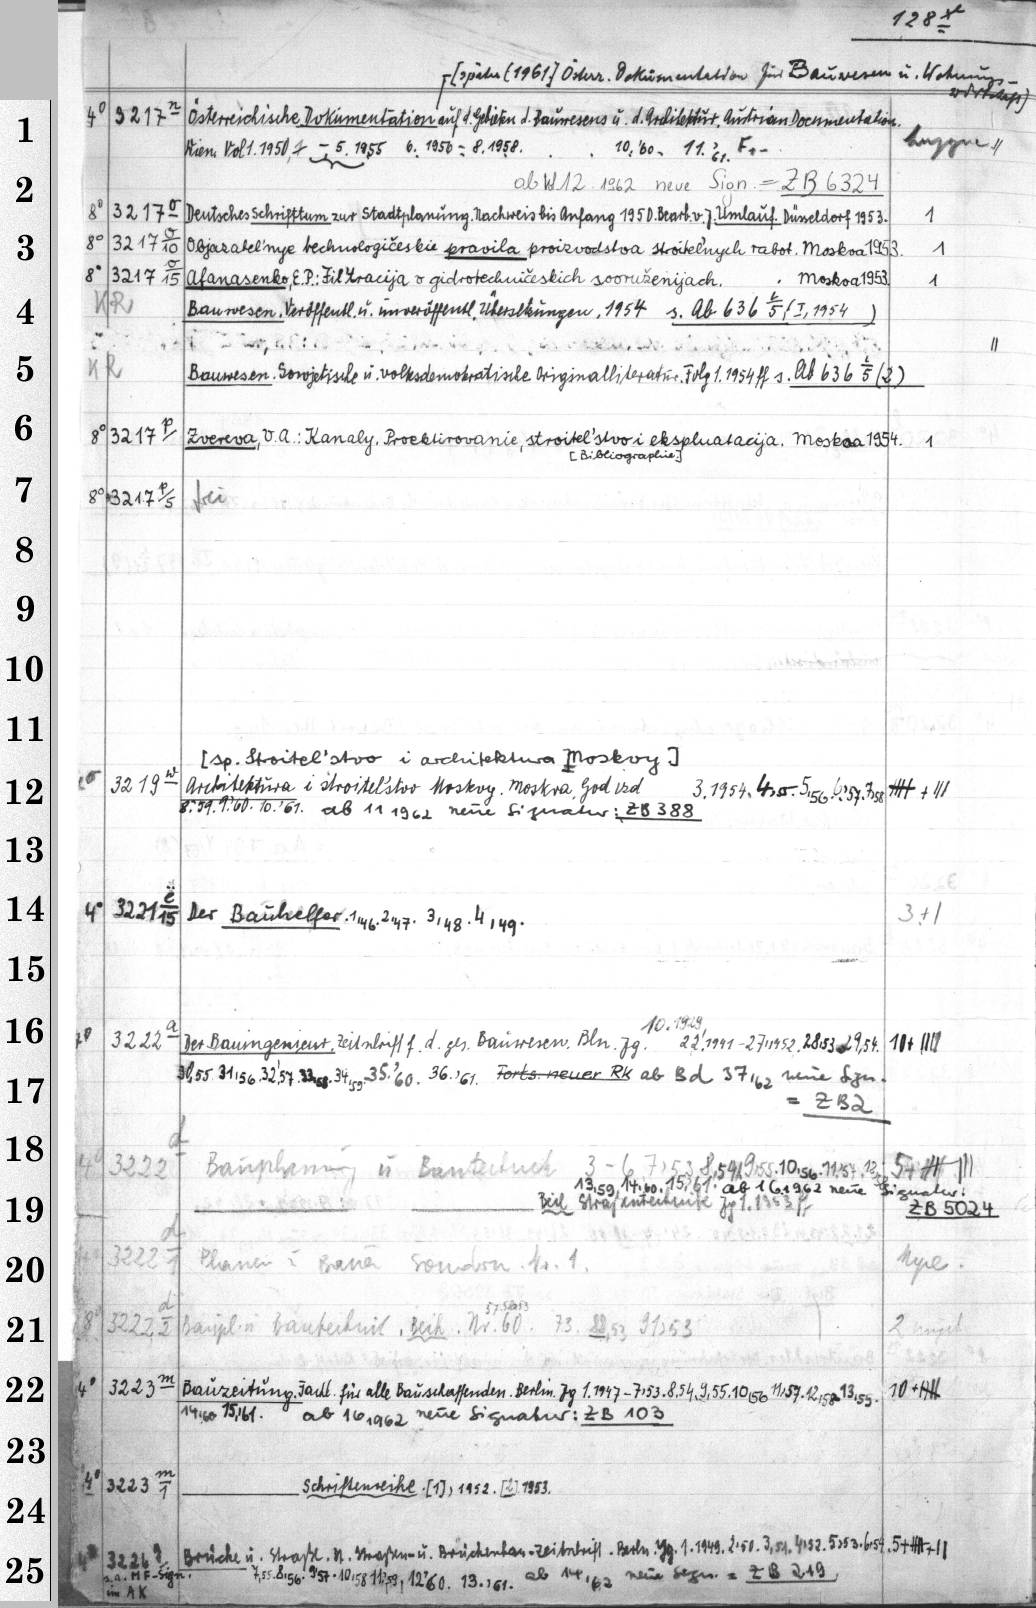 128
[später (1961) Österr. Dokumentation für Bauwesen u. Wohnungs-
wirtschaft)
1
4° 3217 n Österreichische Dokumentation auf d. Gebieten d. Bauwesens u. d. Architektur. Austrian Documentation.
Wien. Vol 1. 1950, – 5. 1955 6. 1956 – 8. 1958. 10.'60. 11.'61.
2
ab 12. 1962 neue Sign. = ZB 6324
8° 3217 o Deutsches Schrifttum zur Stadtplanung. Nachweis bis Anfang 1950. Bearb. v. J. Umlauf. Düsseldorf 1953. 1
3
8° 3217 o/10 Objazatel'nye technologičeskie pravila proizvodstva stroitel'nych rabot. Moskva 1953. 1
8° 3217 o/15 Afanasenko, E.P.: Fil'tracija v gidrotechničeskich sooruženijach. Moskva 1953. 1
4
KR Bauwesen. Veröffentl. u. unveröffentl. Übersetzungen, 1954 s. Ab 636 /5 (I, 1954 )
"
5
KR Bauwesen. Sowjetische u. volksdemokratische Originalliteratur. Folg 1. 1954 ff s. Ab 636 /5 (2)
6
8° 3217 p/ Zvereva, V.A.: Kanaly. Proektirovanie, stroitel'stvo i ekspluatacija. Moskva 1954. 1
[Bibliographie]
7
8° 3217 p/5 frei
8
9
10
11
[sp. Stroitel'stvo i architektura Moskvy]
12
3219 w Architektura i stroitel'stvo Moskvy. Moskva. God izd 3. 1954. 4,55. 5,56. 6,57. 7,58 |||| + |||
8.'59. 9.'60. 10.'61. ab 11 1962 neue Signatur: ZB 388
13
14
4° 3221 ë/15 Der Bauhelfer. 1,46. 2,47. 3,48. 4,49. 3+1
15
10. 1929
16
3222 a Der Bauingenieur. Zeitschrift f. d. ges. Bauwesen. Bln. Jg. 22,1941 – 27,1952. 28,53. 29,54. 10+ ||||
17
30,55 31,56. 32,57. 33,58. 34,59. 35.'60. 36.'61. Forts. neuer RK ab Bd 37,62 neue Sgn.
= ZB2
18
4° 3222 d Bauplanung u Bautechnik 3 – 6. 7,53. 8,54. 9,55. 10,56. 11,57. 12, 5+ |||| |||
13,59. 14,60. 15,61. ab 16.1962 neue Signatur:
19
Beil Straßentechnik Jg 1. 1953 ff ZB 5024
20
3222 d/1 Planen u Bauen Sondern. Nr. 1.
57. 53
21
8° 3222 d/2 Baupl. u Bautechnik. Beih. Nr. 60. 73. 88,53 91,53 2
22
4° 3223 m Bauzeitung. Fachl. für alle Bauschaffenden. Berlin. Jg 1. 1947 – 7,53. 8,54. 9,55. 10,56 11,57. 12,58 13,59. 10 + ||||
14,60 15,61. ab 16 1962 neue Signatur: ZB 103
23
4° 3223 m/1 Schriftenreihe. [1], 1952. [2] 1953.
24
25
3226 Brücke u. Straße. Straßen- u. Brückenbau-Zeitschrift. Berlin. Jg. 1. 1949. 2,50. 3,51. 4,52. 5,53. 6,54. 5+ |||| + ||
s.a. MF-Sign. 7,55. 8,56. 9,57. 10,58 11,59, 12,60. 13.'61. ab 14,62 neue Sgn. = ZB 219
im AK